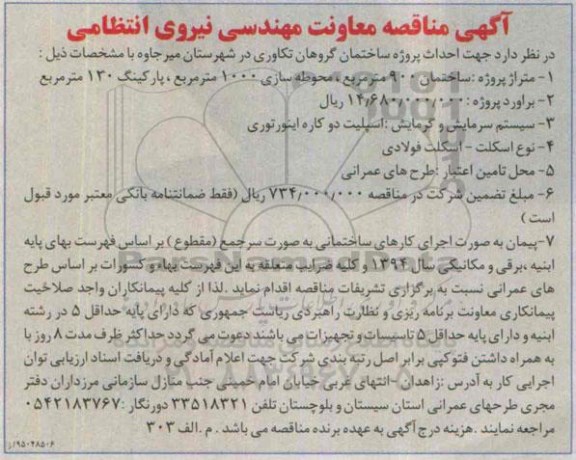 آگهی مناقصه معاونت مهندسی نیروی انتظامی
در نظر دارد جهت احداث پروژه ساختمان گروهان تکاوری در شهرستان میرجاوه با مشخصات ذیل :
۱- متراژ پروژه :ساختمان ۹۰۰ مترمربع ، محوطه سازی ۱۰۰۰ مترمربع ،پارکینگ ۱۳۰ مترمربع
۲- براورد پروژه : ۱۴٫۶۸۰٫۰۰۰٫۰۰۰ ریال
۳- سیستم سرمایش و گرمایش :اسپلیت دو کاره اینورتوری
۴- نوع اسکلت - اسکلت فولادی
۵- محل تامین اعتبار :طرح های عمرانی
۶- مبلغ تضمین شرکت در مناقصه ۷۳۴٫۰۰۰٫۰۰۰ ریال (فقط ضمانتنامه بانکی معتبر مورد قبول
است )
۷-پیمان به صورت اجرای کارهای ساختمانی به صورت سرجمع (مقطوع ) بر اساس فهرست بهای پایه
ابنیه ،برقی و مکانیکی سال ۱۳۹۴ و کلیه ضرایب متعلقه به این فهرست بهاء و کسورات بر اساس طرح
های عمرانی نسبت به برگزاری تشریفات مناقصه اقدام نماید .لذا از کلیه پیمانکاران واجد صلاحیت
پیمانکاری معاونت برنامه ریزی و نظارت راهبردی ریاست جمهوری که دارای پایه حداقل ۵ در رشته
ابنیه و دارای پایه حداقل ۵ تاسیسات و تجهیزات می باشند دعوت می گردد حداکثر ظرف مدت ۸ روز با
به همراه داشتن فتوکپی برابر اصل رتبه بندی شرکت جهت اعلام آمادگی و دریافت اسناد ارزیابی توان
اجرایی کار به آدرس :زاهدان -انتهای غربی خیابان امام خمینی جنب منازل سازمانی مرزداران دفتر
مجری طرحهای عمرانی استان سیستان و بلوچستان تلفن ۳۳۵۱۸۳۲۱ دورنگار :۰۵۴۲۱۸۳۷۶۷
مراجعه نمایند .هزینه درج آگهی به عهده برنده مناقصه می باشد . م .الف ۳۰۳
۹۵۰۴۸۵۰۶/ر
ParsNamadData